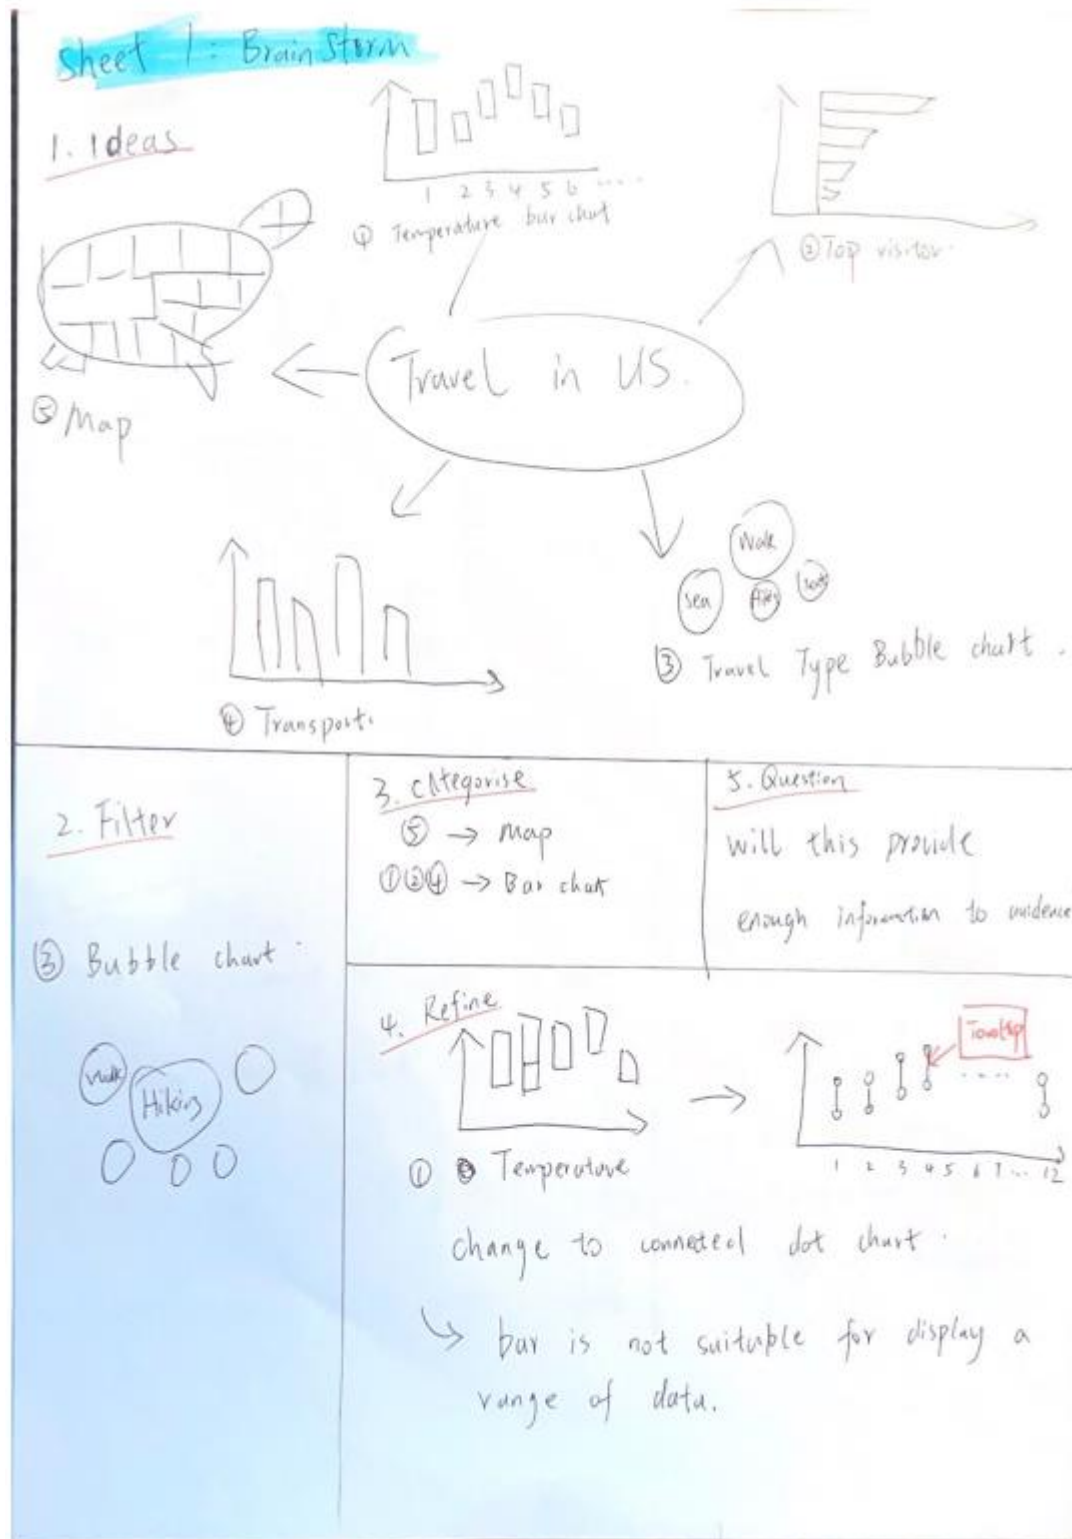 Sheet 1: Brain Storm
1. Ideas
1 2 3 4 5 6 .....
① Temperature bar chart
② Top visitor.
Travel in US.
⑤ Map
Walk
Sea
③ Travel Type Bubble chart.
④ Transport.
2. Filter
③ Bubble chart.
Walk
Hiking
3. Categorise
⑤ → Map
①②④ → Bar chart
5. Question
will this provide
enough information to
4. Refine
Tooltip
1 2 3 4 5 6 7 ... 12
① Temperature
change to conneted dot chart.
bar is not suitable for display a
range of data.